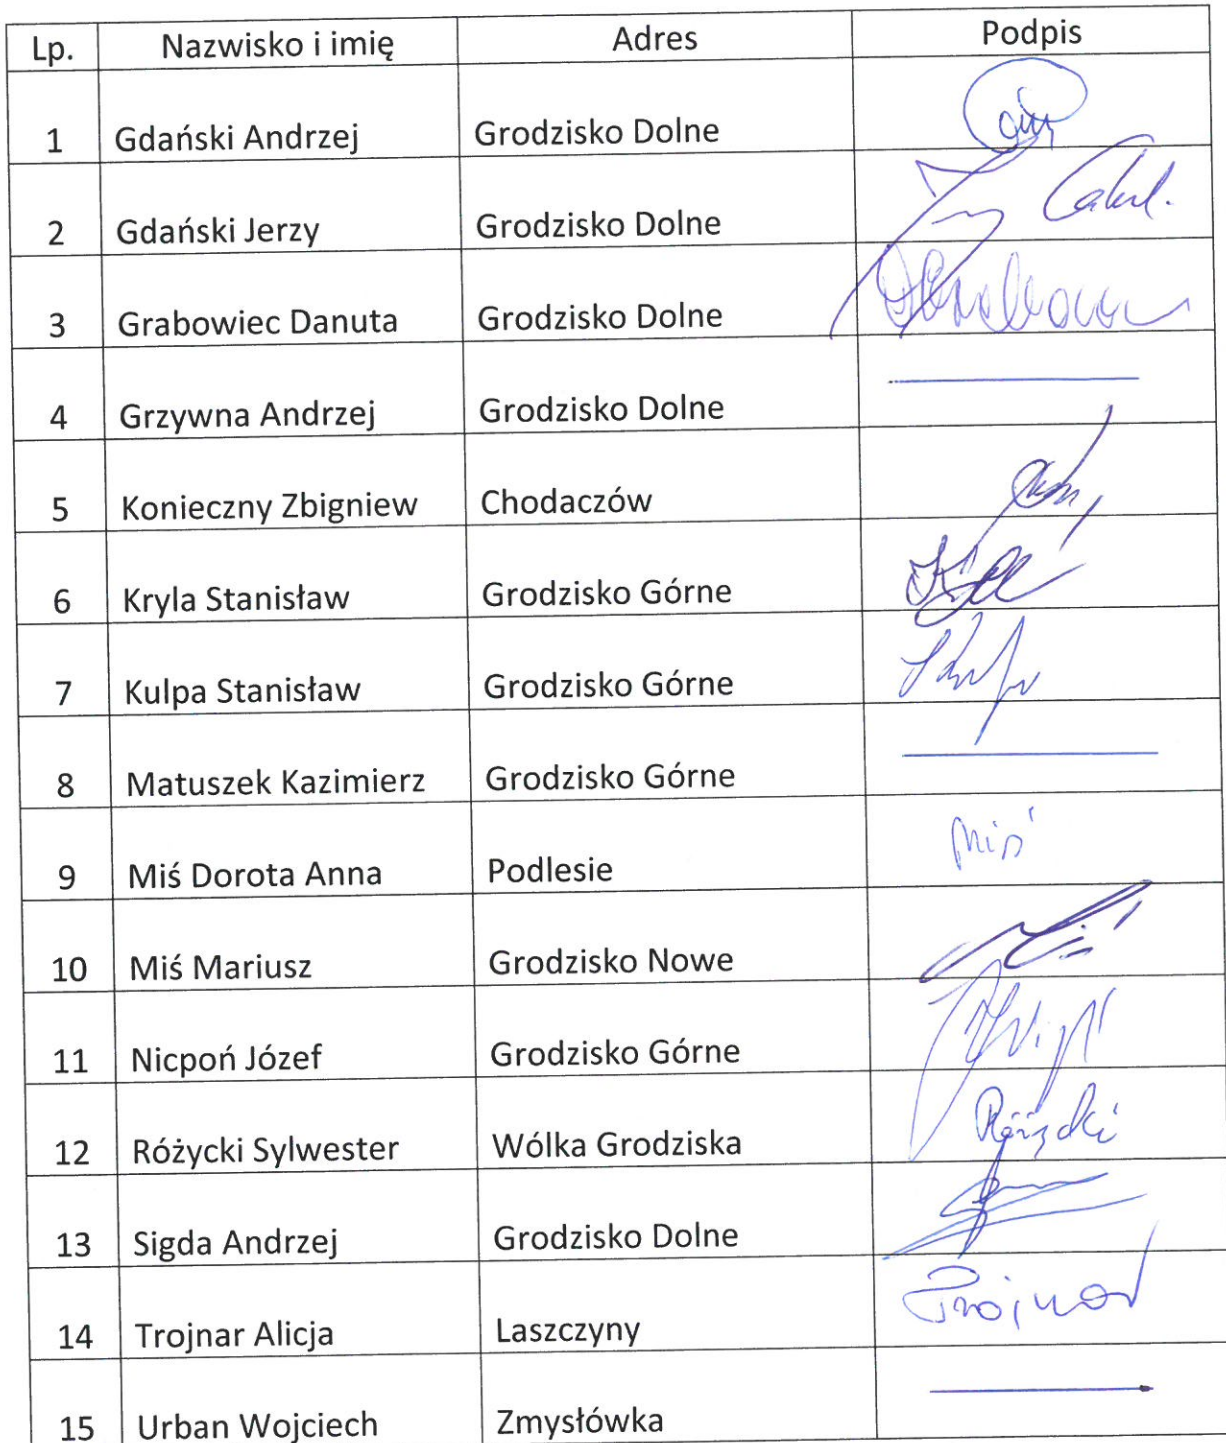 Lp. Nazwisko i imię Adres Podpis
1 Gdański Andrzej Grodzisko Dolne
2 Gdański Jerzy Grodzisko Dolne
3 Grabowiec Danuta Grodzisko Dolne
4 Grzywna Andrzej Grodzisko Dolne
5 Konieczny Zbigniew Chodaczów
6 Kryla Stanisław Grodzisko Górne
7 Kulpa Stanisław Grodzisko Górne
8 Matuszek Kazimierz Grodzisko Górne
9 Miś Dorota Anna Podlesie Miś
10 Miś Mariusz Grodzisko Nowe
11 Nicpoń Józef Grodzisko Górne
12 Różycki Sylwester Wólka Grodziska Różycki
13 Sigda Andrzej Grodzisko Dolne
14 Trojnar Alicja Laszczyny Trojnar
15 Urban Wojciech Zmysłówka